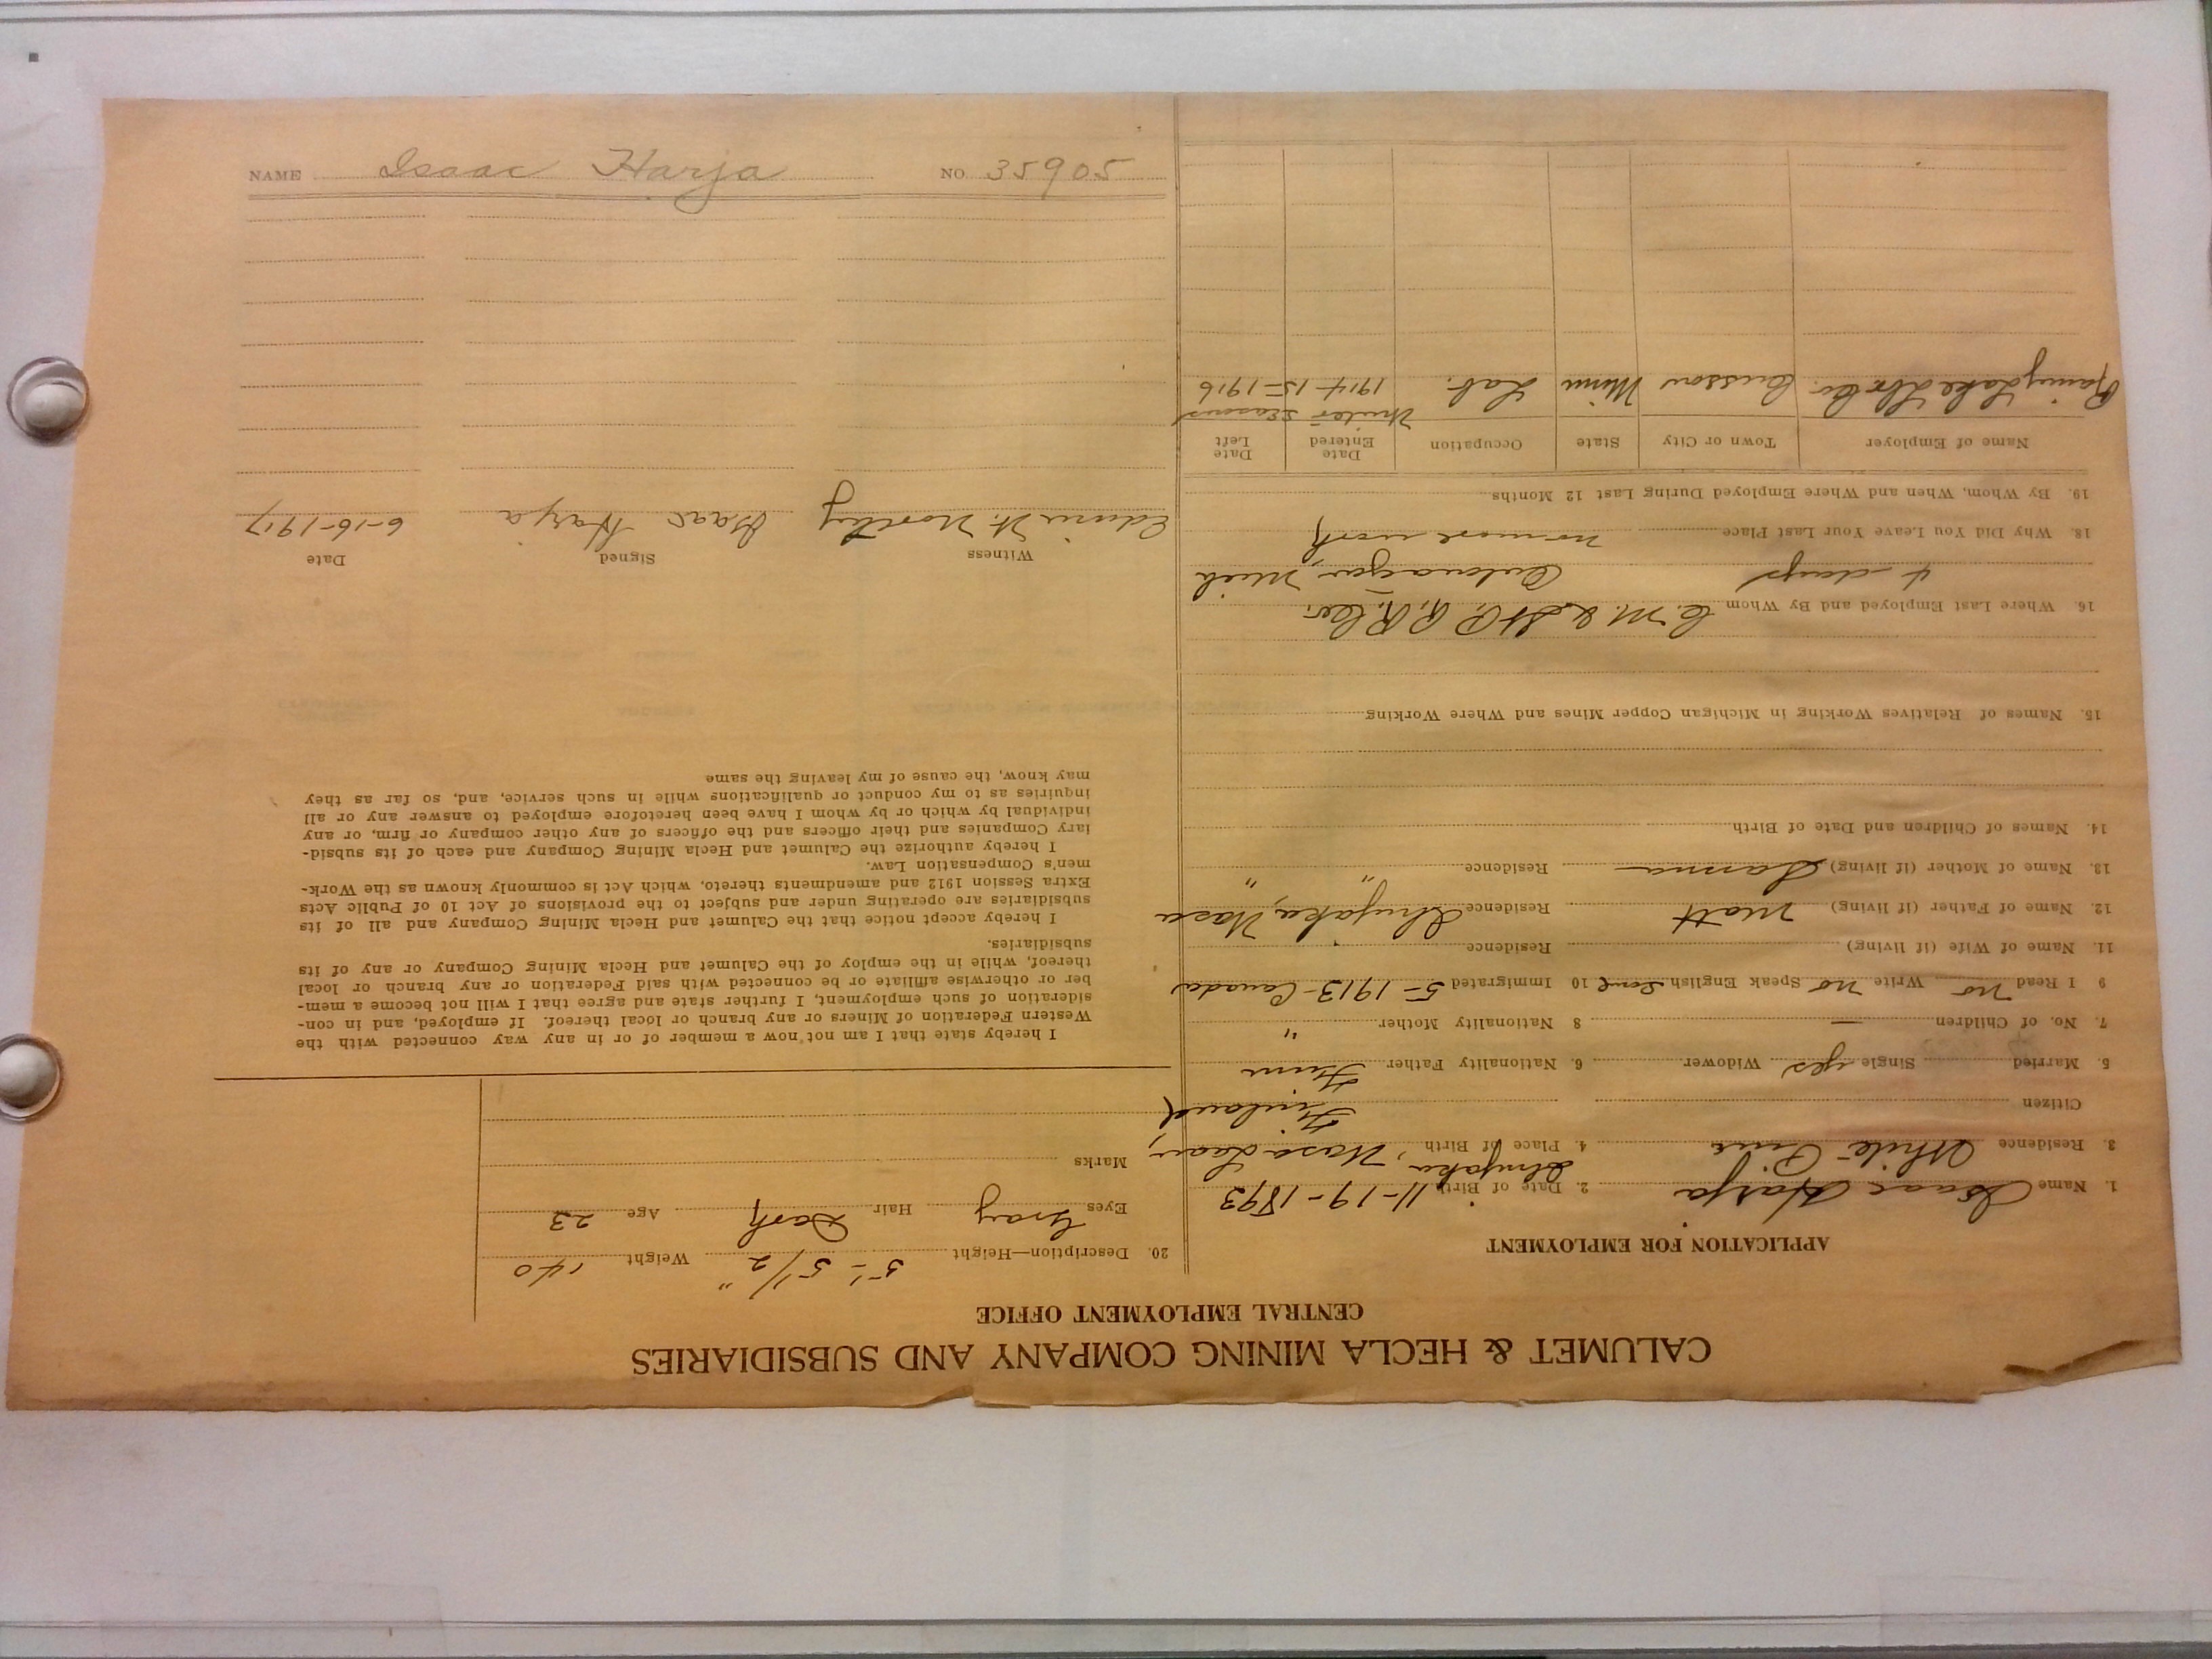 CALUMET & HECLA MINING COMPANY AND SUBSIDIARIES
CENTRAL EMPLOYMENT OFFICE
APPLICATION FOR EMPLOYMENT
1. Name Isaac Harja 2. Date of Birth 11-19-1893
3. Residence White Pine 4. Place of Birth Wasa Laani,
Citizen Finland
5. Married Single yes Widower 6. Nationality Father Finn
7. No. of Children — 8 Nationality Mother "
9 I Read no Write no Speak English some 10 Immigrated 5-1913-Canada
11. Name of Wife (if living) Residence
12. Name of Father (if living) Matt Residence Wasa
13. Name of Mother (if living) Sanna Residence " "
14. Names of Children and Date of Birth
15. Names of Relatives Working in Michigan Copper Mines and Where Working
16. Where Last Employed and By Whom C. M. & St P. R. R. Co.
4 days Ontonagon, Mich
18. Why Did You Leave Your Last Place no more work
19. By Whom, When and Where Employed During Last 12 Months
Name of Employer Town or City State Occupation Date Entered Date Left
Winter Seasons
Rainy Lake Lbr. Co. Cusson Minn Lab. 1914-15-1916
20. Description—Height 5'-5 1/2" Weight 140
Eyes Gray Hair Dark Age 23
Marks
I hereby state that I am not now a member of or in any way connected with the
Western Federation of Miners or any branch or local thereof. If employed, and in con-
sideration of such employment, I further state and agree that I will not become a mem-
ber or otherwise affiliate or be connected with said Federation or any branch or local
thereof, while in the employ of the Calumet and Hecla Mining Company or any of its
subsidiaries.
I hereby accept notice that the Calumet and Hecla Mining Company and all of its
subsidiaries are operating under and subject to the provisions of Act 10 of Public Acts
Extra Session 1912 and amendments thereto, which Act is commonly known as the Work-
men's Compensation Law.
I hereby authorize the Calumet and Hecla Mining Company and each of its subsid-
iary Companies and their officers and the officers of any other company or firm, or any
individual by which or by whom I have been heretofore employed to answer any or all
inquiries as to my conduct or qualifications while in such service, and, so far as they
may know, the cause of my leaving the same
Witness Signed Date
Edwin H. Northey Isaac Harja 6-16-1917
NAME Isaac Harja NO. 35905